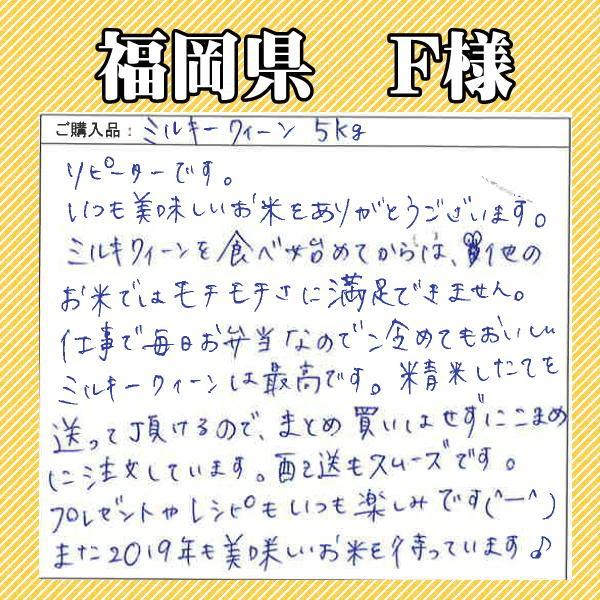 福岡県 F様
ご購入品: ミルキークィーン 5kg
リピーターです。
いつも美味しいお米をありがとうございます。
ミルキクィーンを食べ始めてからは、他の
お米ではモチモチさに満足できません。
仕事で毎日お弁当なので冷めてもおいしい
ミルキークィーンは最高です。精米したてを
送って頂けるので、まとめ買いはせずにこまめ
に注文しています。配送もスムーズです。
プレゼントやレシピもいつも楽しみです(^ー^)
また2019年も美味しいお米を待っています♪